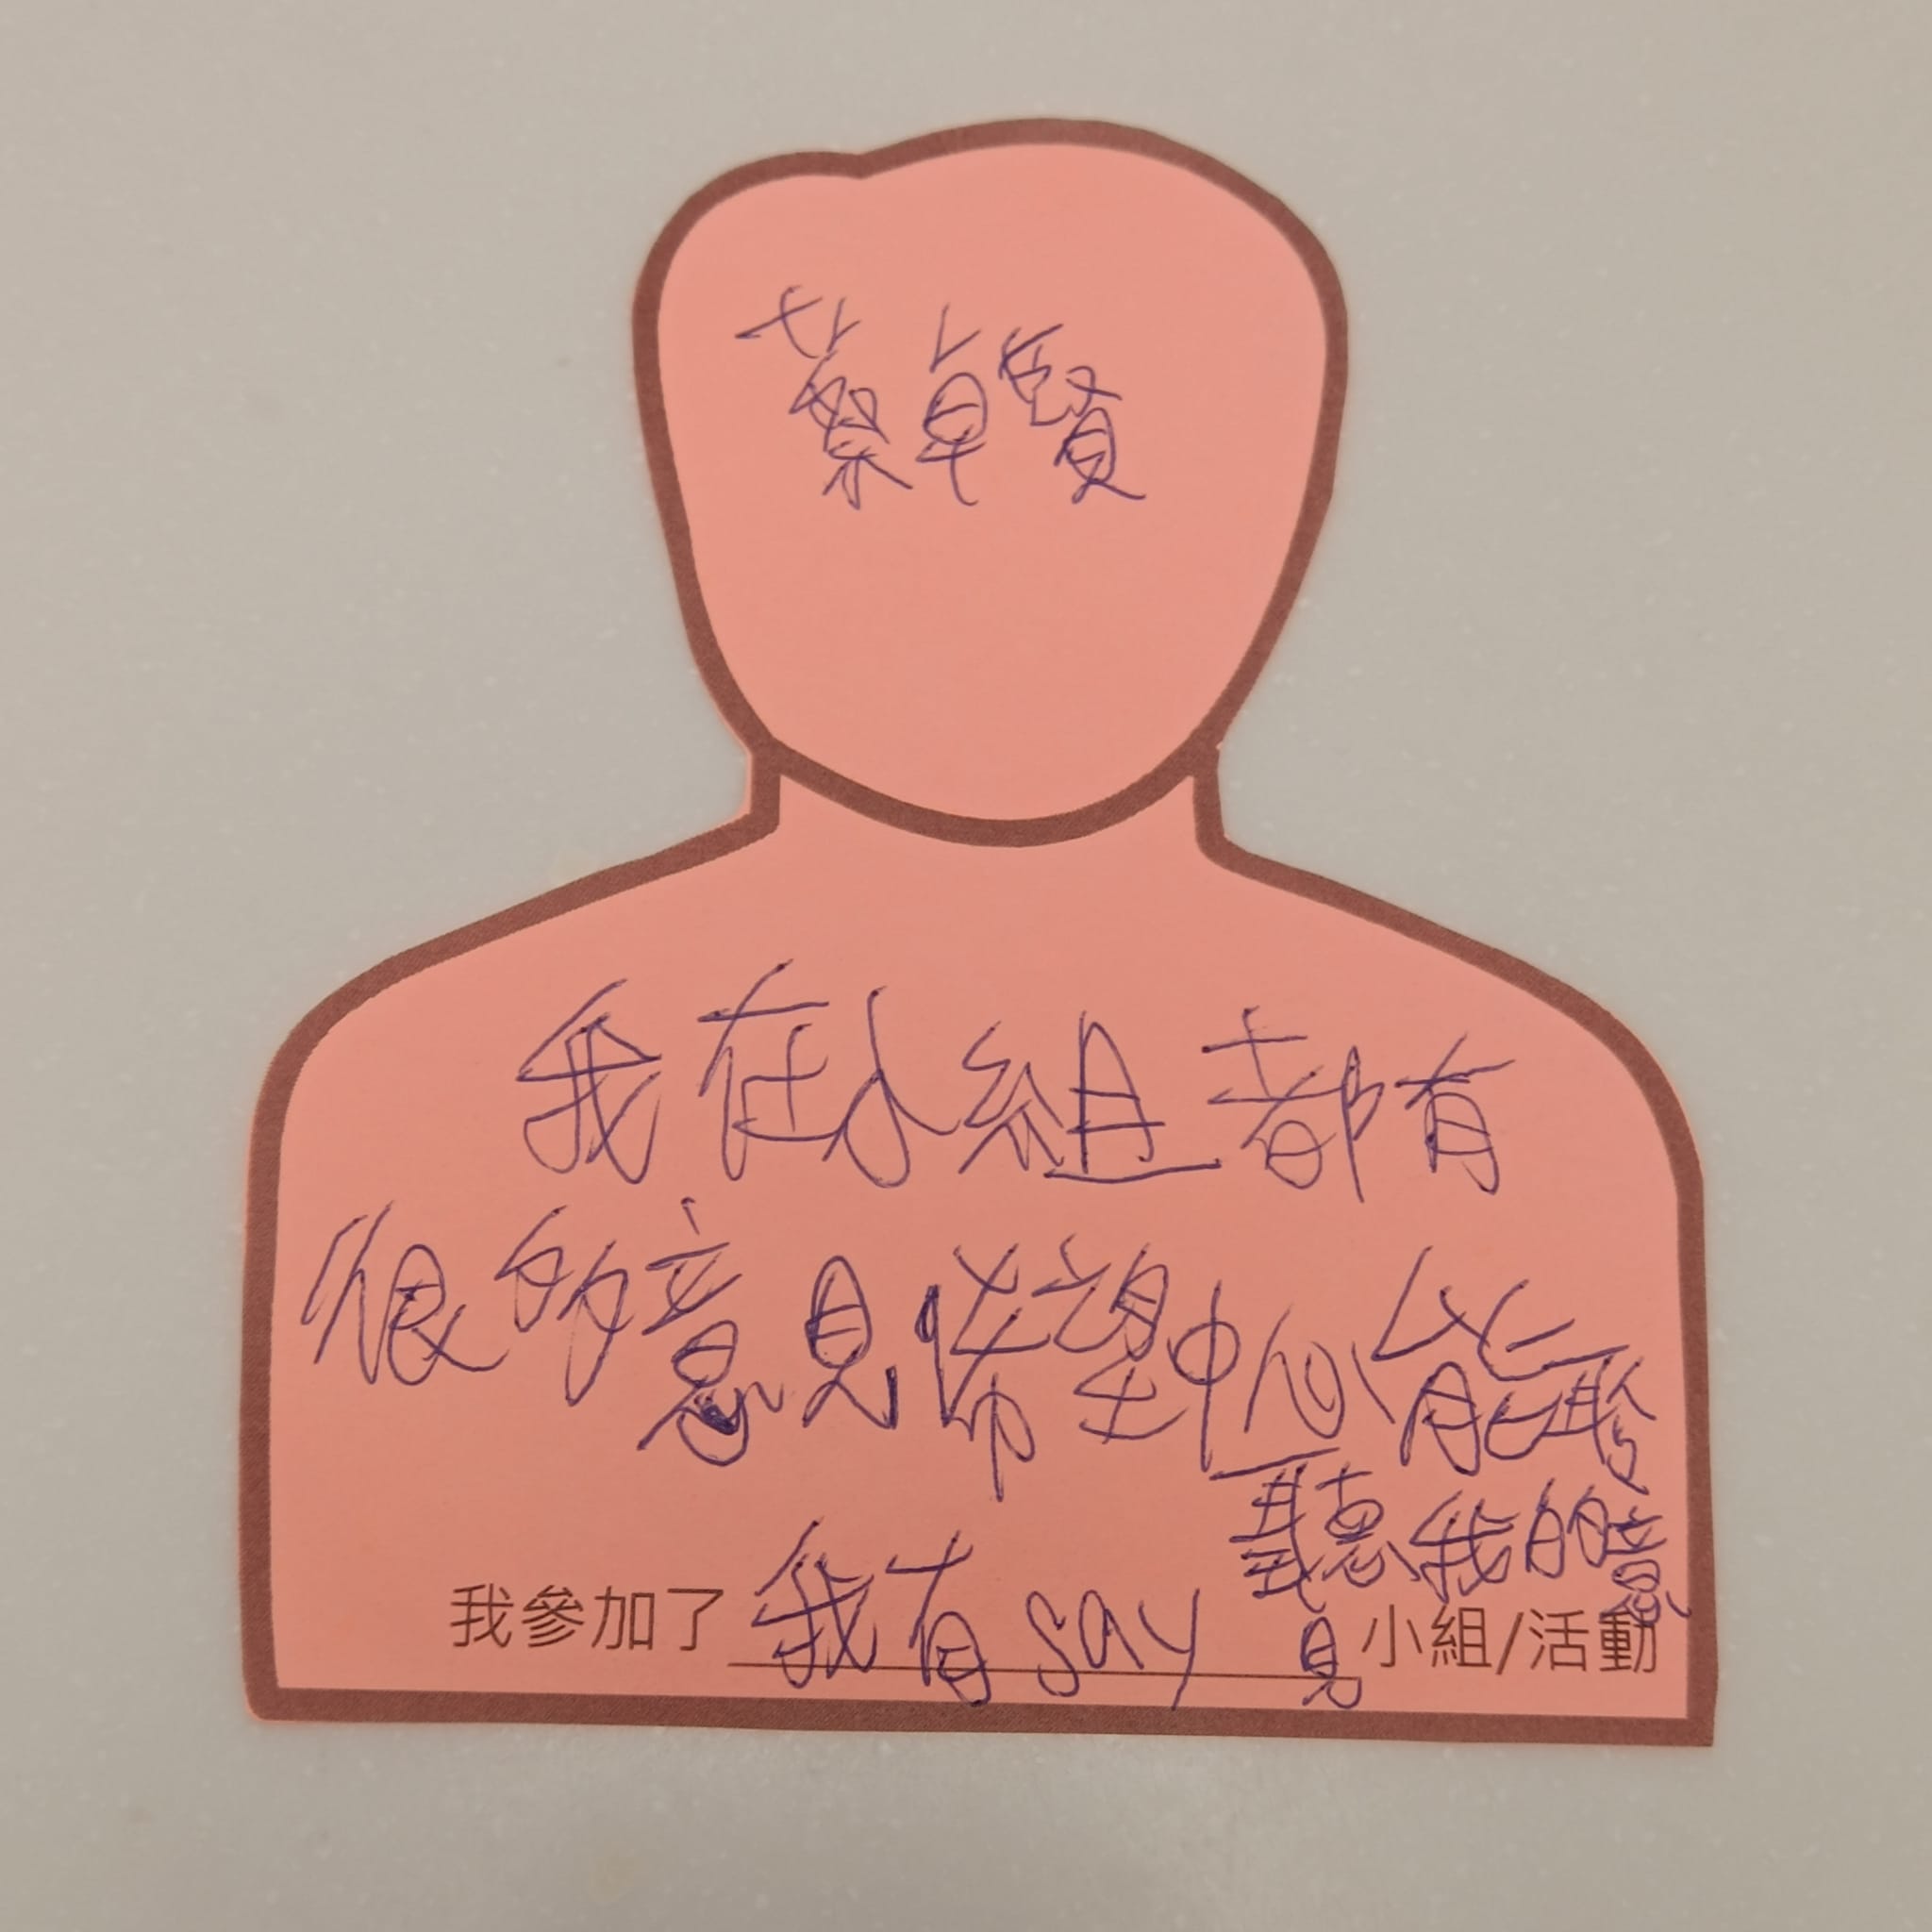 蔡卓賢
我在小組都有
很的意見希望中心能聆
聽我的意
見
我參加了我有say小組/活動